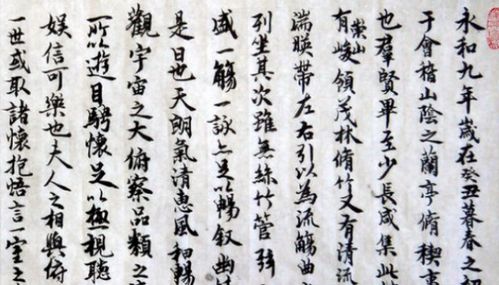 永和九年歲在癸丑暮春之初
于會稽山陰之蘭亭脩稧事
也羣賢畢至少長咸集此地
有崇山峻領茂林脩竹又有清流
湍暎帶左右引以為流觴曲
列坐其次雖無絲竹管弦
盛一觴一詠亦足以暢叙幽情
是日也天朗氣清惠風和暢
觀宇宙之大俯察品類之
所以遊目騁懷足以極視聽
娛信可樂也夫人之相與俯
一世或取諸懷抱悟言一室之